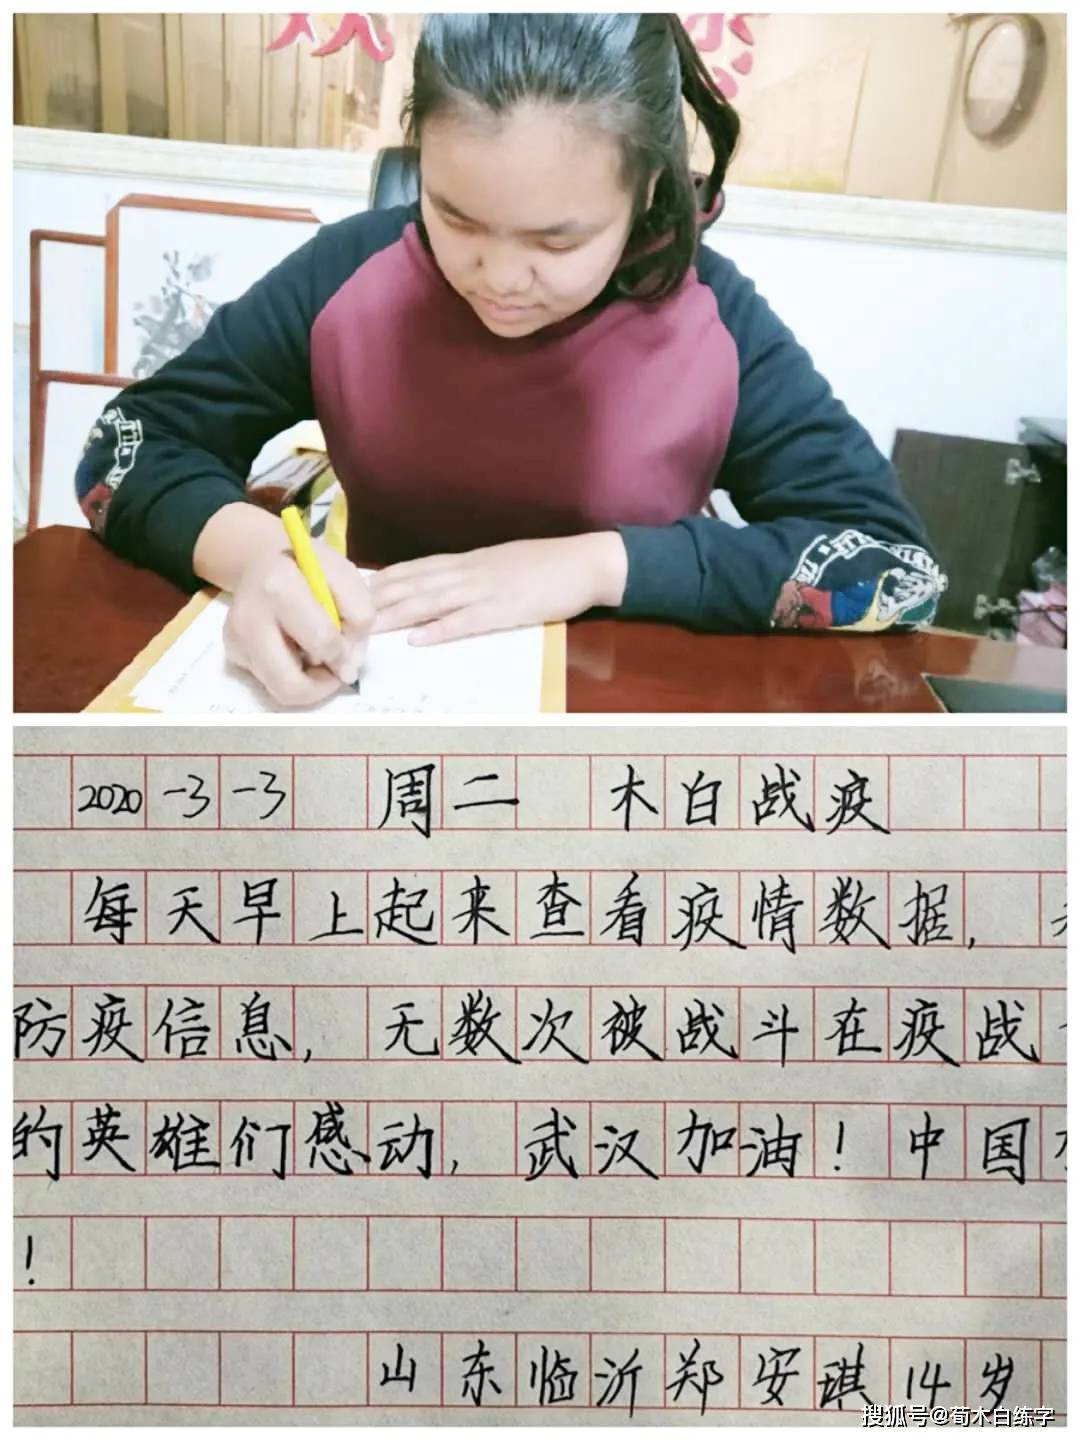 2020-3-3 周二 木白战疫
每天早上起来查看疫情数据，
防疫信息，无数次被战斗在疫战
的英雄们感动，武汉加油！中国
！
山东临沂郑安琪14岁
搜狐号@荀木白练字